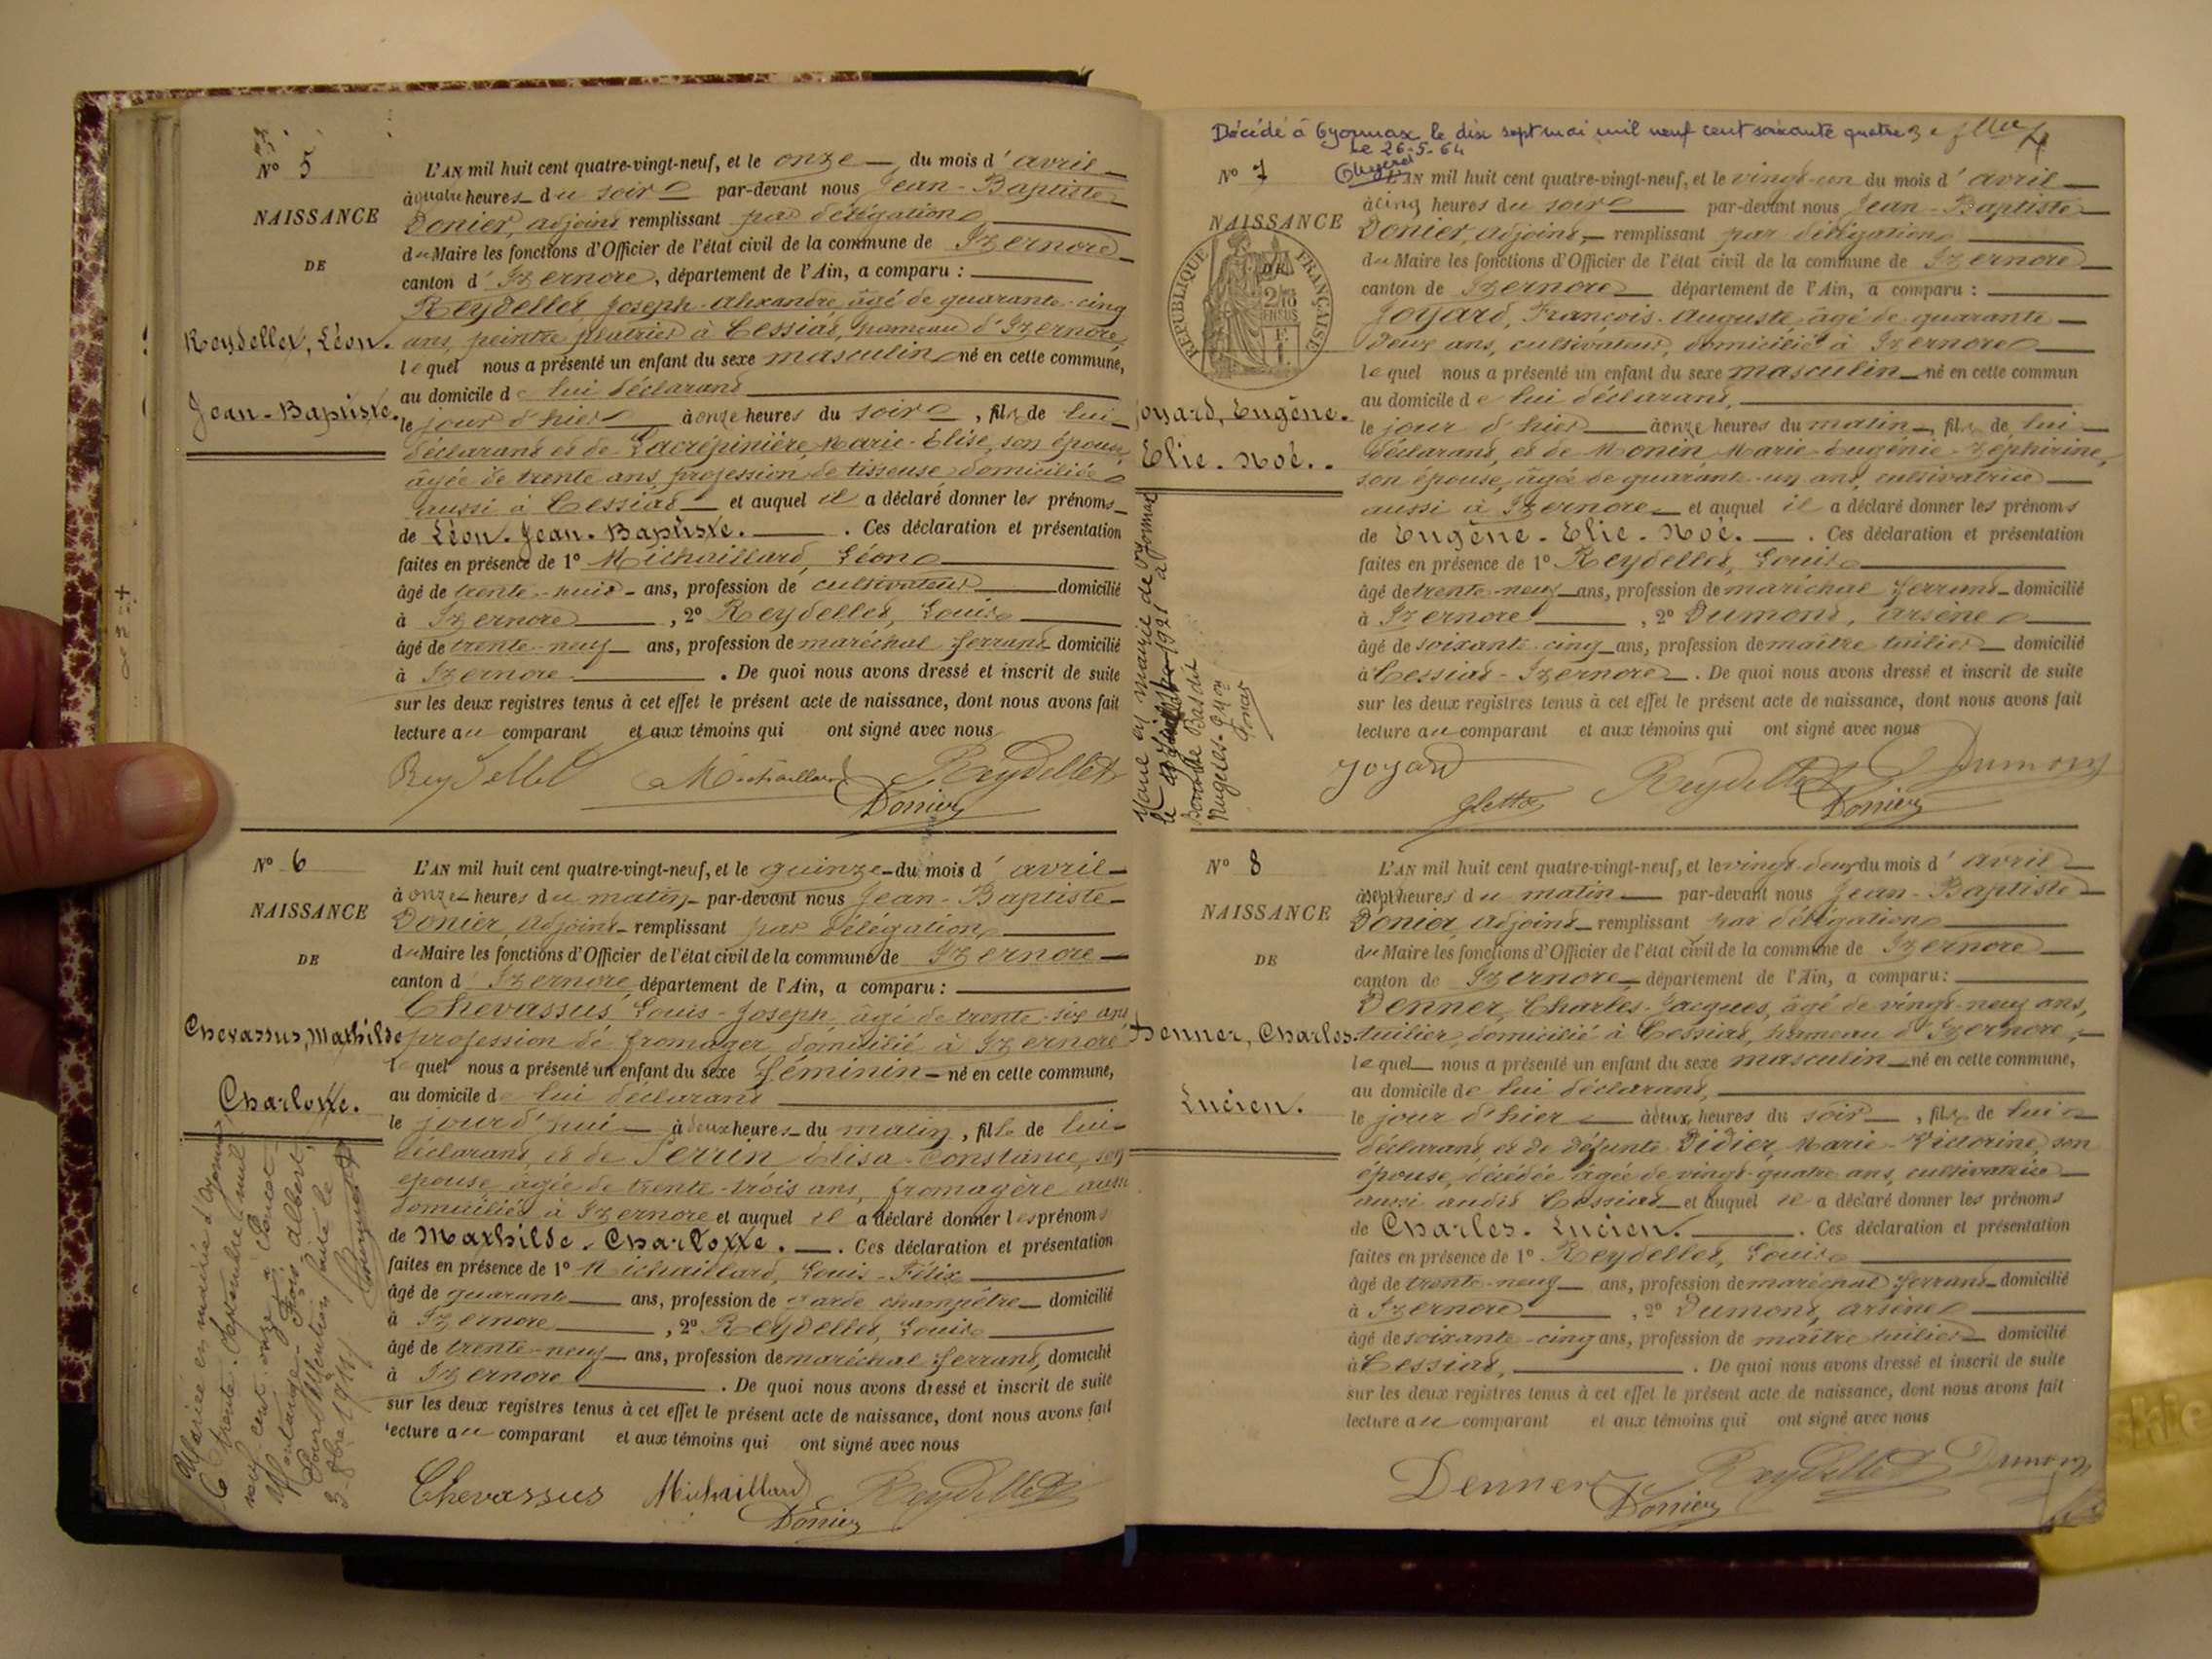 Nº 5
NAISSANCE
DE
Reydellet, Léon.
Jean-Baptiste.
L'AN mil huit cent quatre-vingt-neuf, et le onze du mois d'avril
à quatre heures du soir par-devant nous Jean-Baptiste
Donier, adjoint remplissant par délégation
du Maire les fonctions d'Officier de l'état civil de la commune de Izernore
canton d'Izernore, département de l'Ain, a comparu :
Reydellet Joseph-Alexandre, âgé de quarante-cinq
ans, peintre platrier à Cessiat, hameau d'Izernore,
lequel nous a présenté un enfant du sexe masculin né en cette commune,
au domicile de lui déclarant
le jour d'hier à onze heures du soir, fils de lui
déclarant et de Lacrépinière, Marie-Elise, son épouse
âgée de trente ans, profession de tisseuse domiciliée
aussi à Cessiat et auquel il a déclaré donner les prénoms
de Léon-Jean-Baptiste. Ces déclaration et présentation
faites en présence de 1º Michaillard, Léon
âgé de trente-huit ans, profession de cultivateur domicilié
à Izernore, 2º Reydellet, Louis
âgé de trente-neuf ans, profession de maréchal ferrant domicilié
à Izernore. De quoi nous avons dressé et inscrit de suite
sur les deux registres tenus à cet effet le présent acte de naissance, dont nous avons fait
lecture au comparant et aux témoins qui ont signé avec nous
Reydellet Michaillard Reydellet
Donier
Nº 6
NAISSANCE
DE
Chevassus, Mathilde
Charlotte.
L'AN mil huit cent quatre-vingt-neuf, et le quinze du mois d'avril
à onze heures du matin par-devant nous Jean-Baptiste
Donier, adjoint remplissant par délégation
du Maire les fonctions d'Officier de l'état civil de la commune de Izernore
canton d'Izernore département de l'Ain, a comparu :
Chevassus Louis-Joseph âgé de trente-six ans
profession de fromager domicilié à Izernore
lequel nous a présenté un enfant du sexe féminin né en cette commune,
au domicile de lui déclarant
le jourd'hui à deux heures du matin, fille de lui
déclarant, et de Perrin Elisa-Constance, son
épouse âgée de trente-trois ans, fromagère aussi
domiciliée à Izernore et auquel il a déclaré donner les prénoms
de Mathilde-Charlotte. Ces déclaration et présentation
faites en présence de 1º Michaillard, Louis-Félix
âgé de quarante ans, profession de garde champêtre domicilié
à Izernore, 2º Reydellet, Louis
âgé de trente-neuf ans, profession de maréchal ferrant, domicilié
à Izernore. De quoi nous avons dressé et inscrit de suite
sur les deux registres tenus à cet effet le présent acte de naissance, dont nous avons fait
lecture au comparant et aux témoins qui ont signé avec nous
Chevassus Michaillard Reydellet
Donier
Mariée en mairie d'Oyonnax
le trente Septembre mil
neuf cent onze à
Albert
Pour Mention faite le
3 8bre 1911
Décédé à Oyonnax le dix sept mai mil neuf cent soixante quatre
le 26-5-64
Nº 7
NAISSANCE
DE
RÉPUBLIQUE FRANÇAISE
Joyard, Eugène.
Elie-Noé.
L'AN mil huit cent quatre-vingt-neuf, et le vingt-un du mois d'avril
à cinq heures du soir par-devant nous Jean-Baptiste
Donier, adjoint, remplissant par délégation
du Maire les fonctions d'Officier de l'état civil de la commune de Izernore
canton de Izernore département de l'Ain, a comparu :
Joyard, François-Auguste âgé de quarante
deux ans, cultivateur, domicilié à Izernore
lequel nous a présenté un enfant du sexe masculin né en cette commun
au domicile de lui déclarant,
le jour d'hier à onze heures du matin, fils de lui
déclarant, et de Monin Marie-Eugénie-Zéphirine,
son épouse, âgée de quarante-un ans, cultivatrice
aussi à Izernore et auquel il a déclaré donner les prénoms
de Eugène-Elie-Noé. Ces déclaration et présentation
faites en présence de 1º Reydellet, Louis
âgé de trente-neuf ans, profession de maréchal ferrant domicilié
à Izernore, 2º Dumont, Arsène
âgé de soixante-cinq ans, profession de maître tuilier domicilié
à Cessiat-Izernore. De quoi nous avons dressé et inscrit de suite
sur les deux registres tenus à cet effet le présent acte de naissance, dont nous avons fait
lecture au comparant et aux témoins qui ont signé avec nous
Joyard Reydellet Dumont
Donier
Marié en mairie de
le 1921 à
Nº 8
NAISSANCE
DE
Denner, Charles
Lucien.
L'AN mil huit cent quatre-vingt-neuf, et le vingt-deux du mois d'avril
à sept heures du matin par-devant nous Jean-Baptiste
Donier, adjoint remplissant par délégation
du Maire les fonctions d'Officier de l'état civil de la commune de Izernore
canton de Izernore, département de l'Ain, a comparu :
Denner, Charles-Jacques, âgé de vingt-neuf ans,
tuilier, domicilié à Cessiat, hameau d'Izernore,
lequel nous a présenté un enfant du sexe masculin né en cette commune,
au domicile de lui déclarant,
le jour d'hier à deux heures du soir, fils de lui
déclarant, et de défunte Didier, Marie-Victorine, son
épouse, décédée âgée de vingt-quatre ans, cultivatrice
aussi audit Cessiat et auquel il a déclaré donner les prénoms
de Charles-Lucien. Ces déclaration et présentation
faites en présence de 1º Reydellet, Louis
âgé de trente-neuf ans, profession de maréchal ferrant domicilié
à Izernore, 2º Dumont, Arsène
âgé de soixante-cinq ans, profession de maître tuilier domicilié
à Cessiat, . De quoi nous avons dressé et inscrit de suite
sur les deux registres tenus à cet effet le présent acte de naissance, dont nous avons fait
lecture au comparant et aux témoins qui ont signé avec nous
Denner Reydellet Dumont
Donier